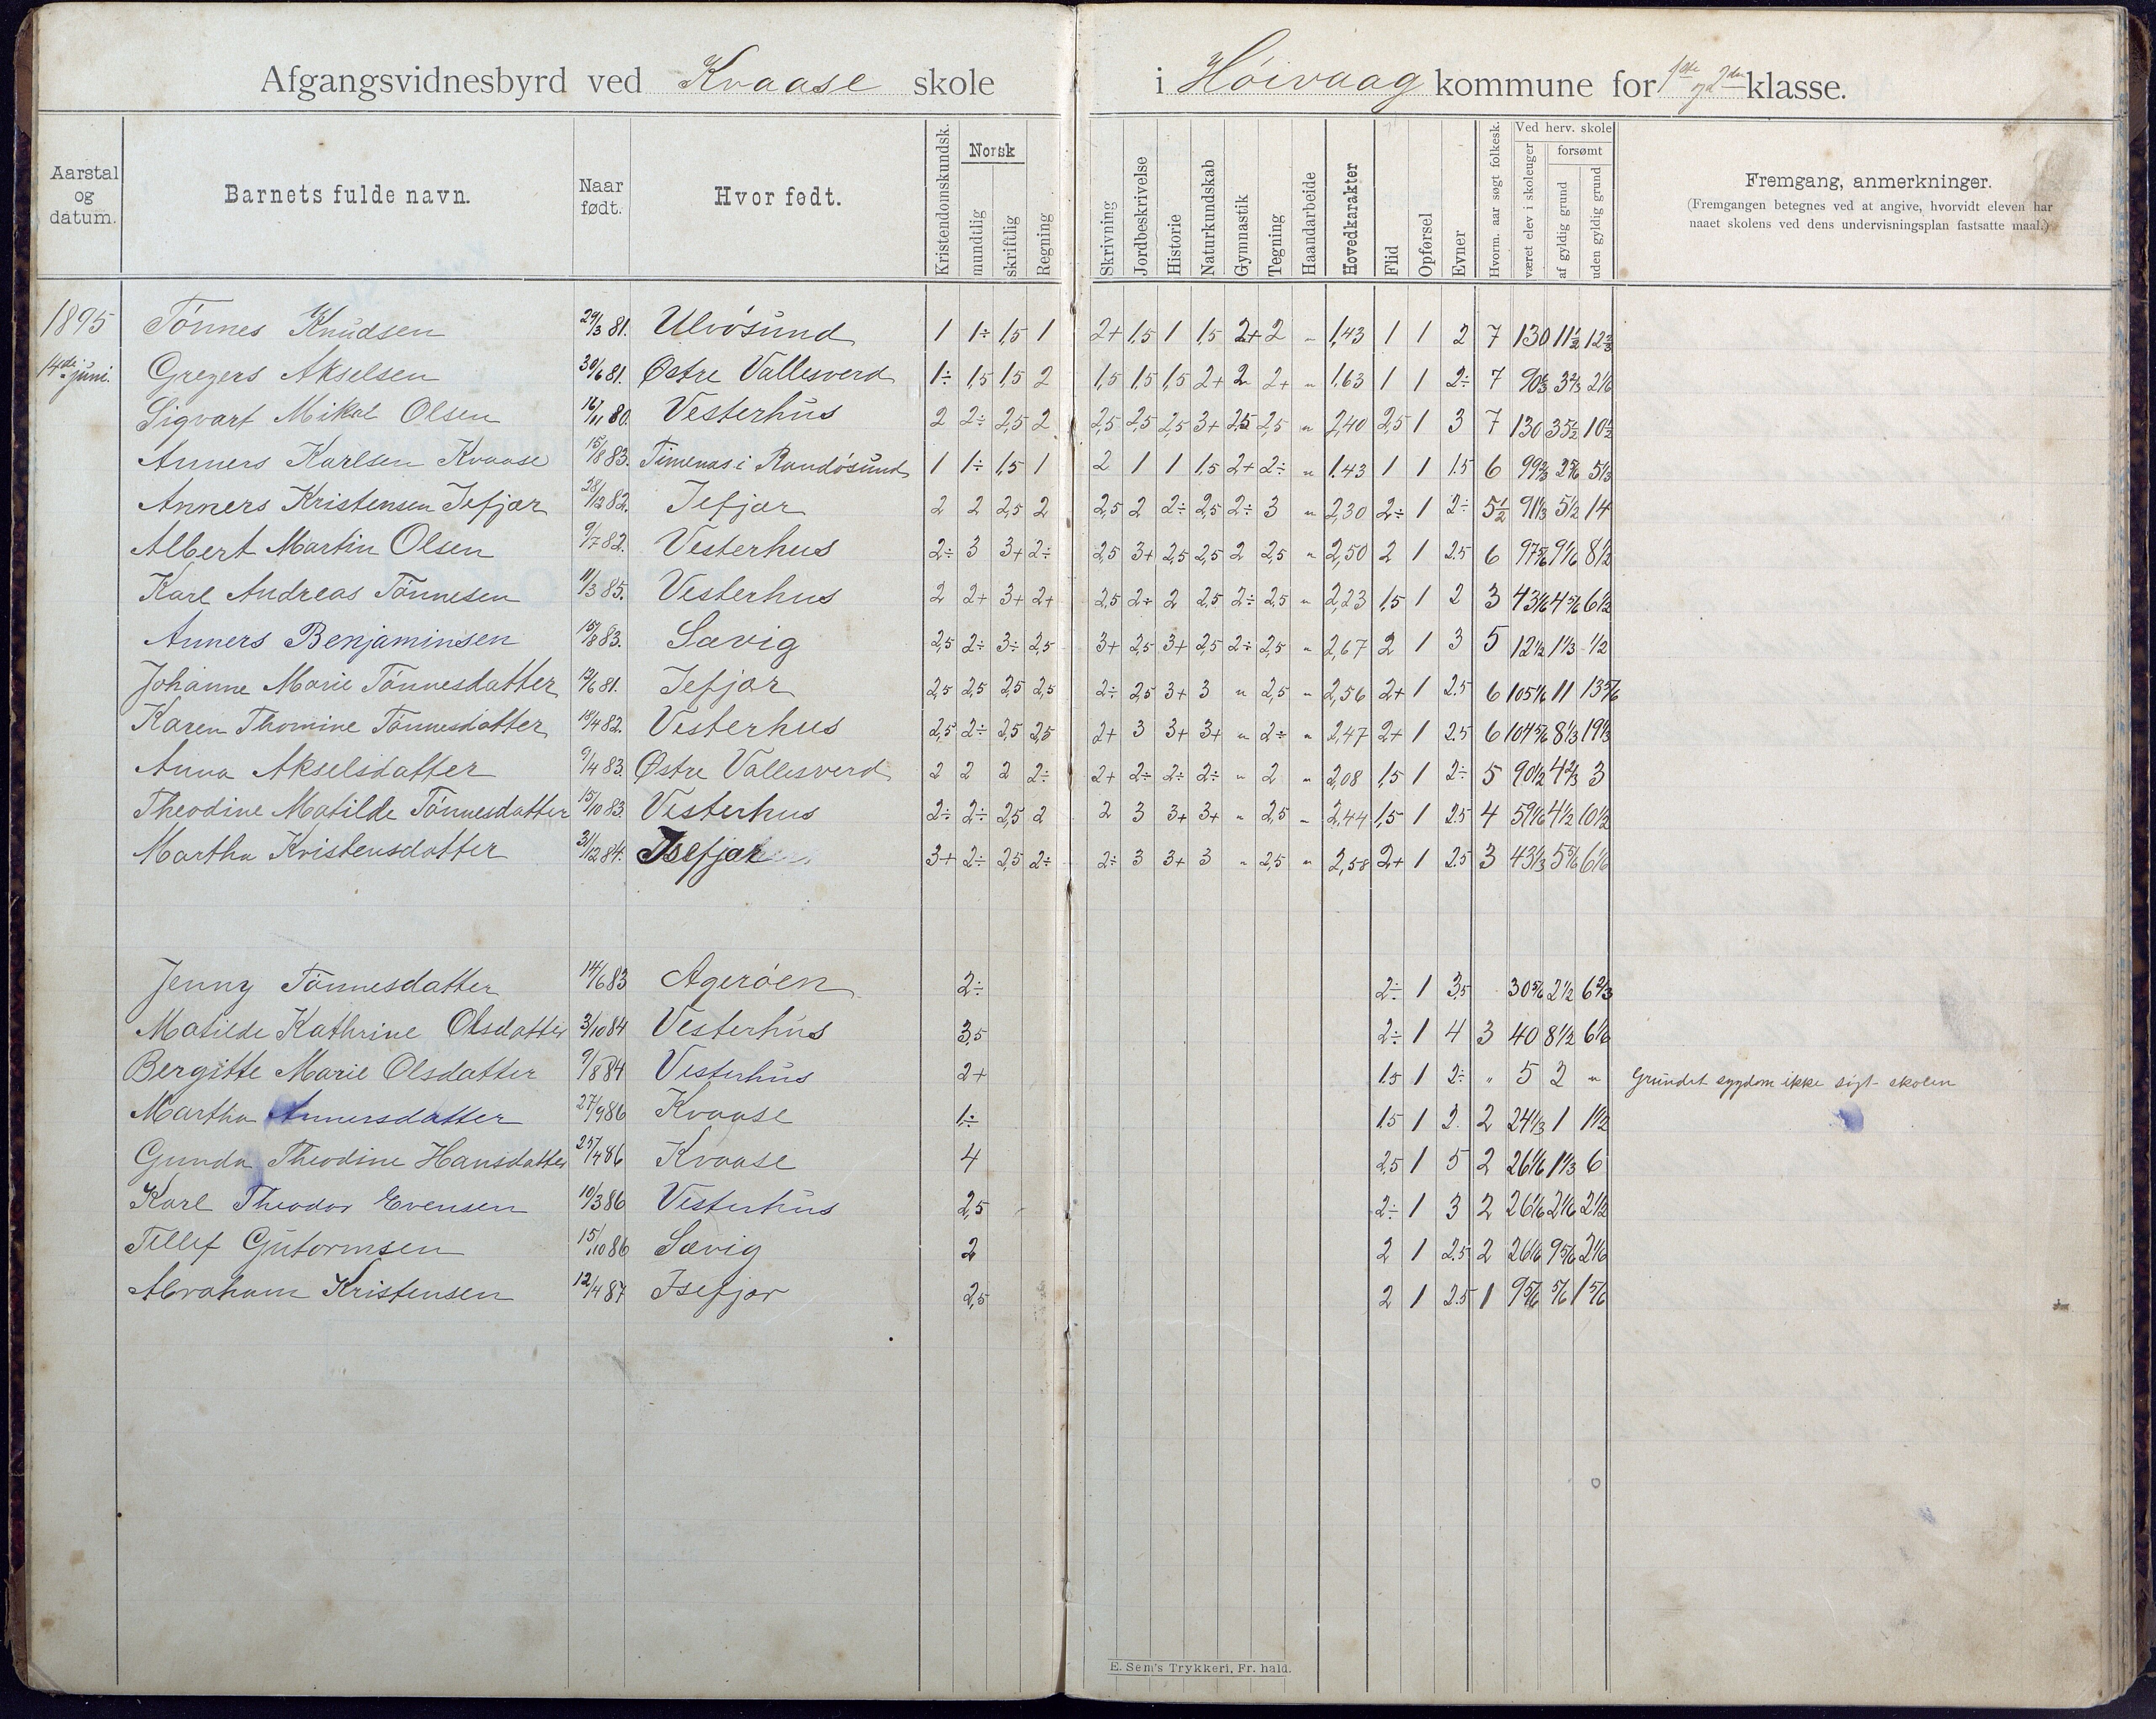 Afgangsvidnesbyrd ved Kvaase skole i Høivaag kommune for 1ste og 2den klasse.
Aarstal og datum. Barnets fulde navn. Naar født. Hvor født. Kristendomskundsk. Norsk mundtlig skriftlig Regning Skrivning Jordbeskrivelse Historie Naturkundskab Gymnastik Tegning Haandarbeide Hovedkarakter Flid Opførsel Evner Hvorm. aar søgt folkesk. Ved herv. skole været elev i skoleuger forsømt af gyldig grund uden gyldig grund Fremgang, anmerkninger.
(Fremgangen betegnes ved at angive, hvorvidt eleven har
naaet skolens ved dens undervisningsplan fastsatte maal.)
1895 Tönnes Knudsen 29/3 81. Ulvösund 1 1÷ 1,5 1 2+ 1,5 1 1,5 2+ 2 „ 1,43 1 1 2 7 130 11½ 12⅔
14de juni. Gregers Akselsen 30/6 81. Østre Vallesverd 1÷ 1,5 1,5 2 1,5 1,5 1,5 2+ 2 2+ „ 1,63 1 1 2÷ 7 90⅔ 3⅔ 2⅙
Sigvart Mikal Olsen 16/11 80. Vesterhus 2 2÷ 2,5 2 2,5 2,5 2,5 3+ 2,5 2,5 „ 2,40 2,5 1 3 7 130 35½ 10½
Anners Karlsen Kvaase 15/8 83. Timenas i Randösund 1 1÷ 1,5 1 2 1 1 1,5 2+ 2÷ „ 1.43 1 1 1.5 6 99⅔ 2⅚ 5⅓
Anners Kristensen Isefjær 28/12 82. Isefjær 2 2 2,5 2 2,5 2 2÷ 2,5 2÷ 3 „ 2,30 2÷ 1 2÷ 5½ 91⅓ 5½ 14
Albert Martin Olsen 9/7 82. Vesterhus 2÷ 3 3+ 2÷ 2,5 3+ 2,5 2,5 2 2,5 „ 2,50 2 1 2.5 6 97⅚ 9⅙ 8½
Karl Andreas Tönnesen 11/3 85. Vesterhus 2 2+ 3+ 2+ 2,5 2÷ 2 2,5 2÷ 2,5 „ 2,23 1,5 1 2 3 43⅙ 4⅚ 6½
Anners Benjaminsen 15/8 83. Sævig 2,5 2÷ 3÷ 2,5 3+ 2,5 3+ 2,5 2÷ 2,5 „ 2,67 2 1 3 5 12½ 1⅓ ½
Johanne Marie Tönnesdatter 12/6 81. Isefjær 2,5 2,5 2,5 2,5 2÷ 2,5 3+ 3 „ 2,5 „ 2,56 2+ 1 2.5 6 105⅙ 11 13⅚
Karen Thomine Tönnesdatter 18/4 82. Vesterhus 2,5 2÷ 2,5 2,5 2+ 3 3+ 3+ „ 2÷ „ 2,47 2+ 1 2.5 6 104⅚ 8⅓ 19⅓
Anna Akselsdatter 9/4 83. Østre Vallesverd 2 2 2 2÷ 2+ 2÷ 2÷ 2÷ „ 2 „ 2,08 1,5 1 2÷ 5 90½ 4⅔ 3
Theodine Matilde Tönnesdatter 15/10 83. Vesterhus 2÷ 2÷ 2,5 2 2 3 3+ 3+ „ 2,5 „ 2,44 1,5 1 2.5 4 59⅙ 4½ 10½
Martha Kristensdatter 31/12 84. Isefjær 3+ 2÷ 2,5 2÷ 2÷ 3 3+ 3 „ 2,5 „ 2,58 2+ 1 2.5 3 43⅓ 5⅚ 6⅙
Jenny Tönnesdatter 14/6 83 Ageröen 2÷ 2÷ 1 3,5 30⅚ 2½ 6⅔
Matilde Kathrine Olsdatter 3/10 84 Vesterhus 3,5 2÷ 1 4 3 40 8½ 6⅙
Bergitte Marie Olsdatter 9/8 84 Vesterhus 2+ 1.5 1 2÷ „ 5 2 „ Grundet sygdom ikke sögt skolen
Martha Annersdatter 27/9 86 Kvaase 1÷ 1.5 1 2. 2 24⅓ 1 1½
Gunda Theodine Hansdatter 25/4 86 Kvaase 4 2.5 1 5 2 26⅙ 1⅓ 6
Karl Theodor Evensen 10/3 86 Vesterhus 2,5 2÷ 1 3 2 26⅙ 2⅙ 2½
Tellef Gutormsen 15/10 86 Sævig 2 2 1 2.5 2 26⅙ 9⅚ 2⅙
Abraham Kristensen 12/4 87 Isefjær 2,5 2 1 2.5 1 9⅚ ⅚ 1⅚
E. Sem's Trykkeri, Fr. hald.